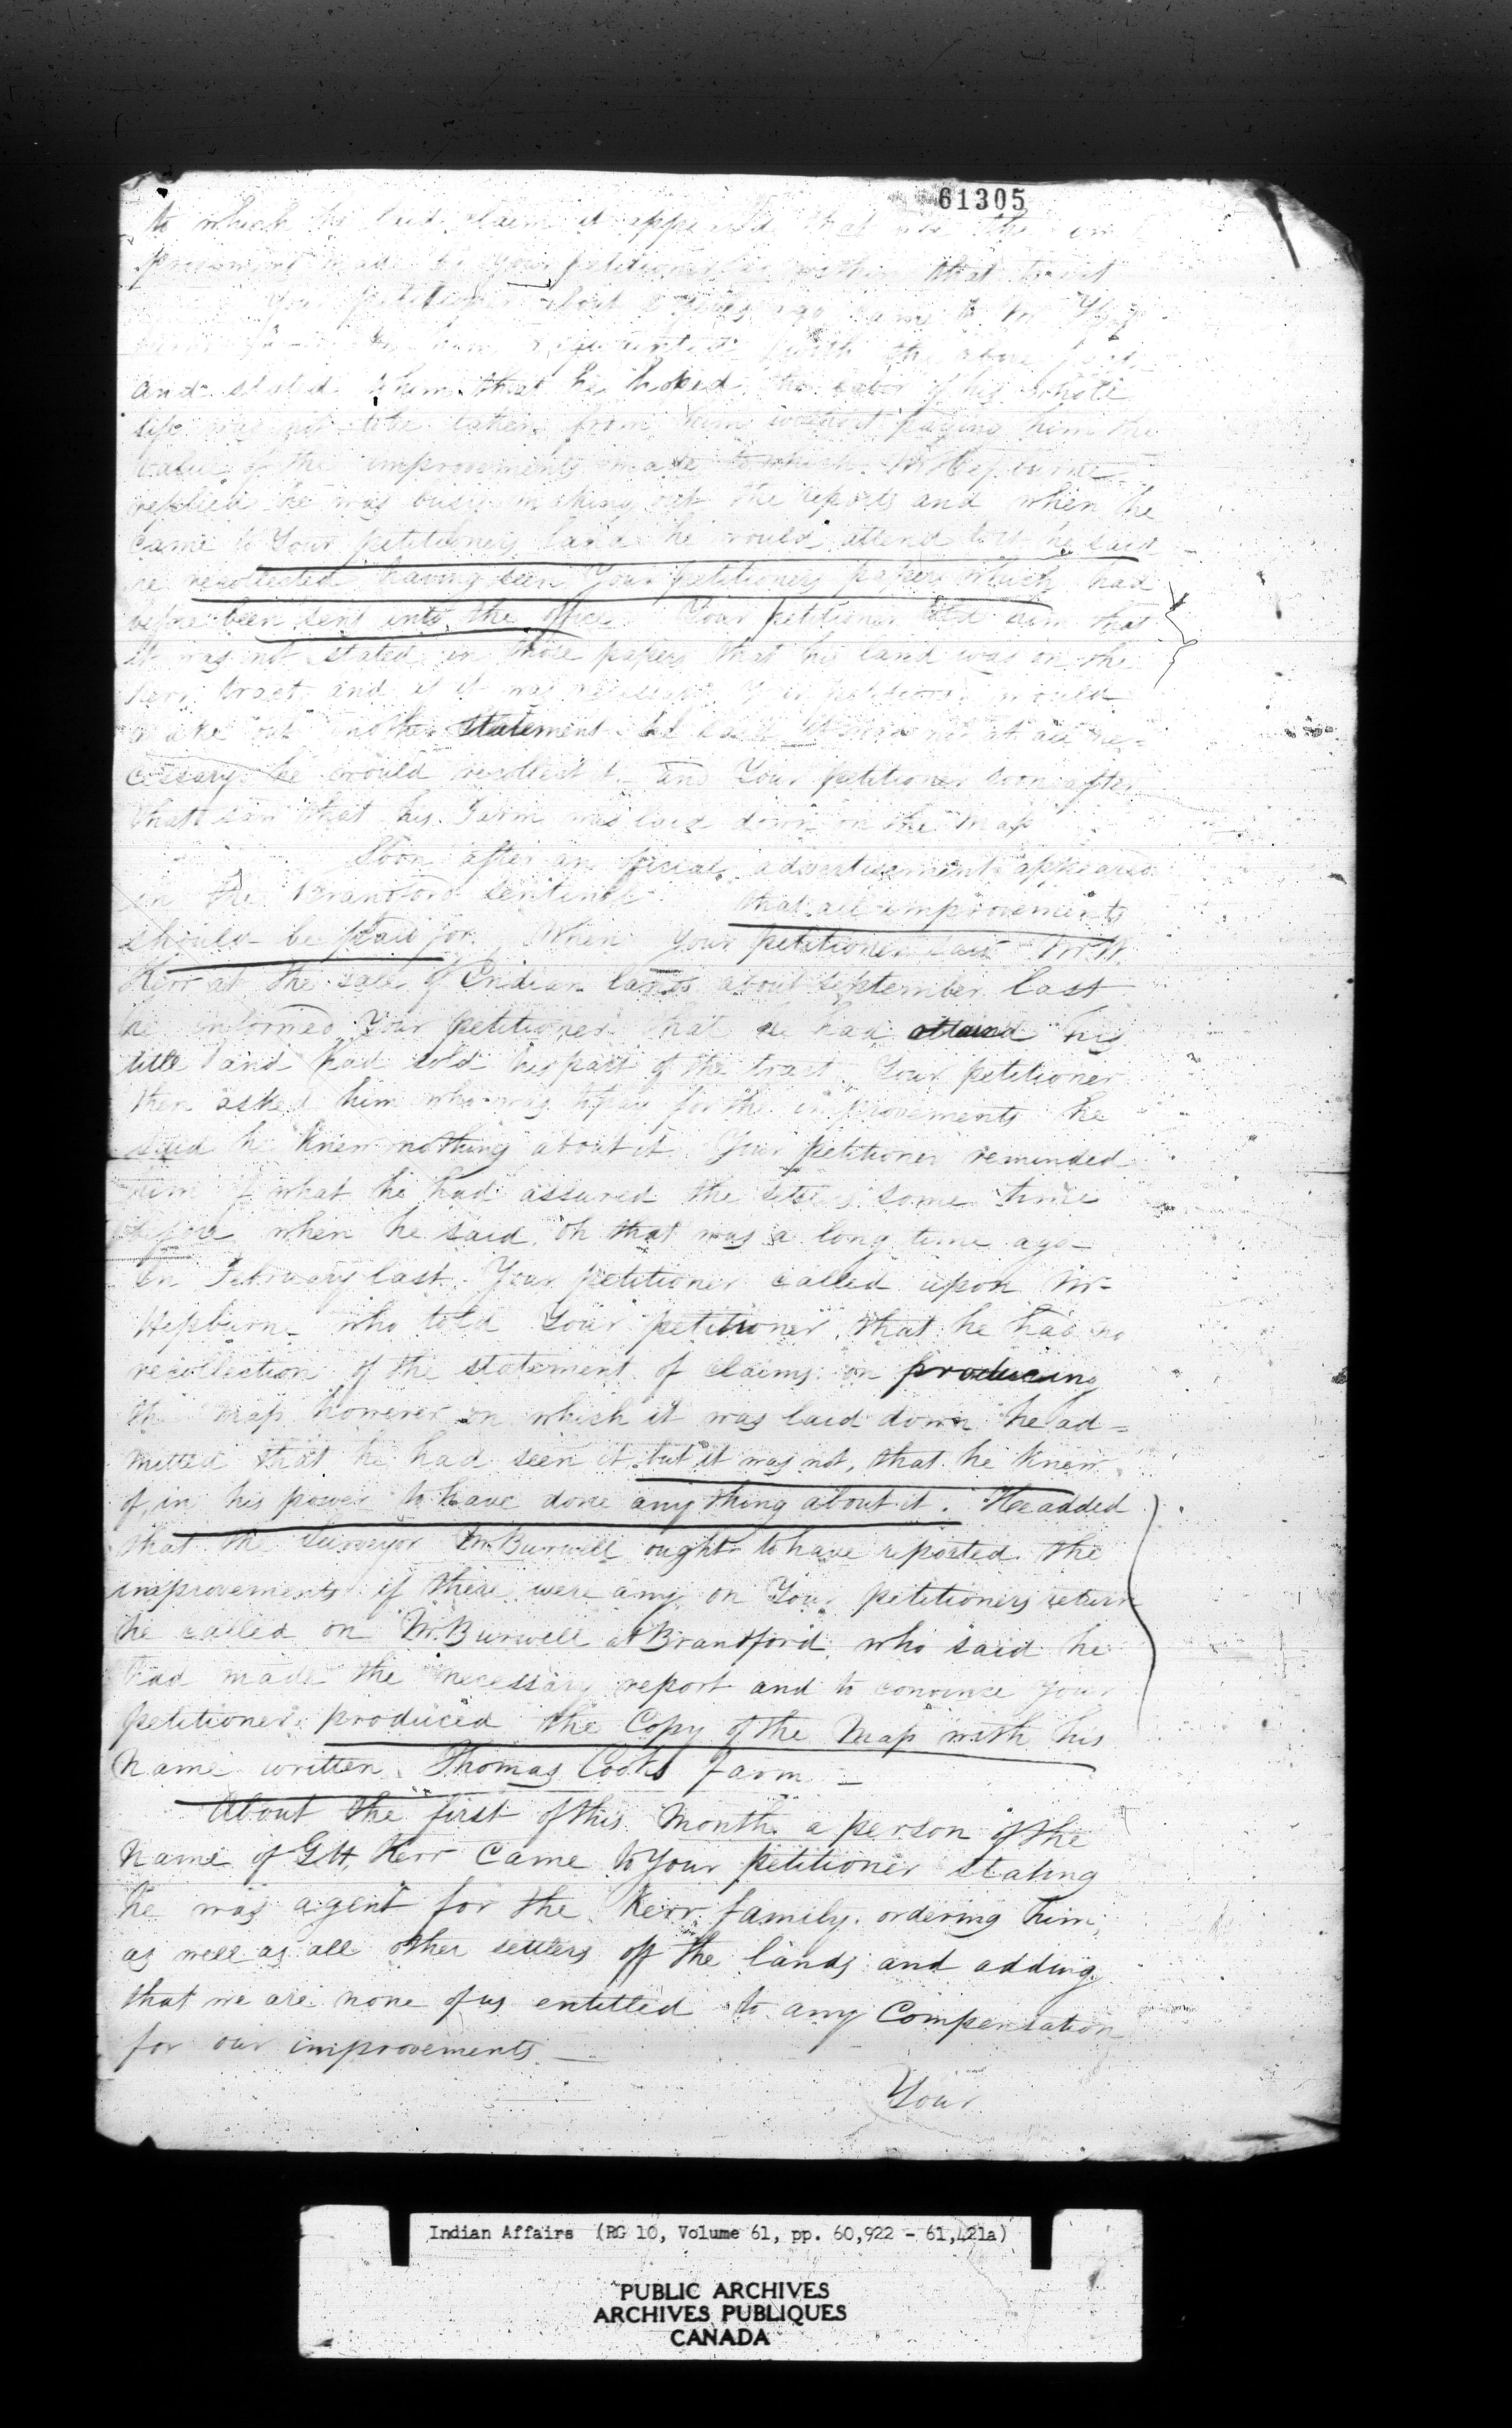 61305
to which he laid claim it appeared that
made by your petitioner within that tract
Your petitioner about 2 years ago came to Mr
with the above
and stated to him that he hoped the labor of his whole
life was not to be taken from him without paying him the
value of the improvements made to which Mr Hepburne
replied he was busy making out the reports and when he
came to Your petitioners land he would attend to it he said
he recollected having seen Your petitioners papers which had
before been sent into the office. Your petitioner told him that
it was not stated in those papers that his land was on the
Kerr tract and if it was necessary Your petitioner would
make out another statement he said it was not at all ne=
cessary he would recollect it and Your petitioner soon after
that saw that his Farm was laid down on the Map
Soon after an official advertisement appeared
in the Brantford Sentinel that all improvements
should be paid for. When Your petitioner saw Mr W.
Kerr at the sale of Indian lands about September last
he informed Your petitioner that he had attaind his
title and had sold his part of the tract. Your petitioner
then asked him who was to pay for the improvements he
said he knew nothing about it. Your petitioner reminded
him of what he had assured the settlers some time
before when he said, oh that was a long time ago-
In February last Your petitioner called upon Mr-
Hepburn- who told Your petitioner, that he had no
recollection of the statement of claims on producing
the map however on which it was laid down he ad=
mitted that he had seen it but it was not, that he knew
of, in his power to have done any thing about it. He added
that the Surveyor Mr. Burwell ought to have reported the
improvements if there were any on Your petitioners return
he called on Mr. Burwell at Brandford, who said he
had made the necessary report and to convince your
petitioner, produced the Copy of the Map with his
name written, Thomas Cooks Farm -
About the first of this Month a person of the
Name of G.H. Kerr Came to Your petitioner stating
he was agent for the Kerr family, ordering him,
as well as all other settlers off the lands and adding
that we are none of us entitled to any Compensation
for our improvements -
Your
Indian Affairs (RG 10, Volume 61, pp. 60,922 - 61,421a)
PUBLIC ARCHIVES
ARCHIVES PUBLIQUES
CANADA